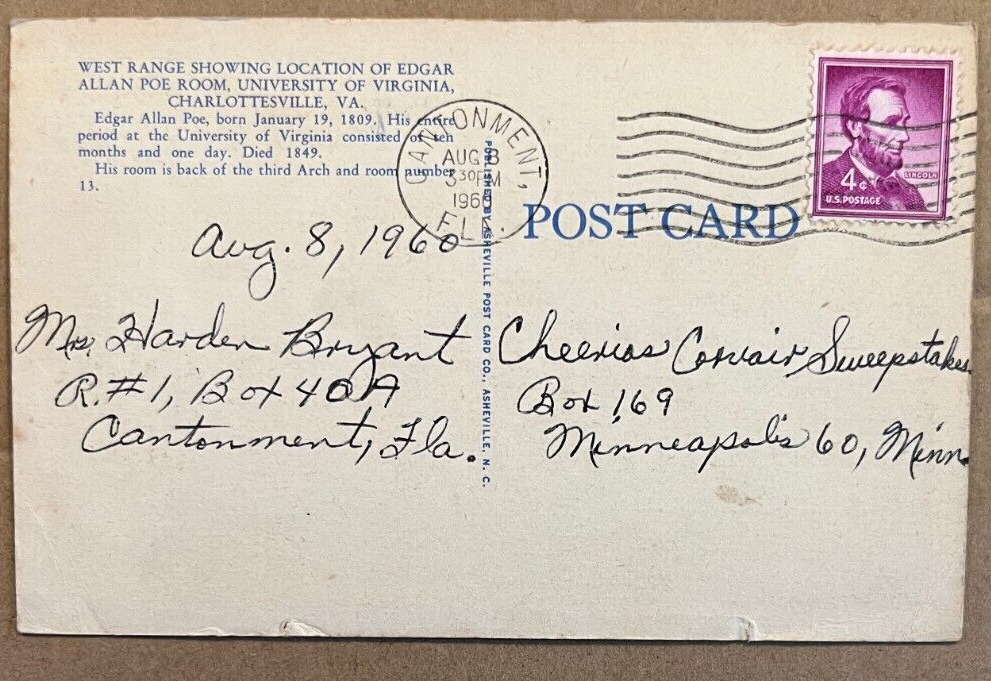 WEST RANGE SHOWING LOCATION OF EDGAR
ALLAN POE ROOM, UNIVERSITY OF VIRGINIA,
CHARLOTTESVILLE, VA.
Edgar Allan Poe, born January 19, 1809. His entire
period at the University of Virginia consisted of ten
months and one day. Died 1849.
His room is back of the third Arch and room number
13.
CANTONMENT,
AUG 8
3 30 PM
1960
FLA.
LINCOLN
4¢
U.S. POSTAGE
POST CARD
PUBLISHED BY ASHEVILLE POST CARD CO., ASHEVILLE, N. C.
Aug. 8, 1960
Mrs. Harden Bryant
R. #1, Box 40A
Cantonment, Fla.
Cheerios Corvair Sweepstakes
Box 169
Minneapolis 60, Minn.